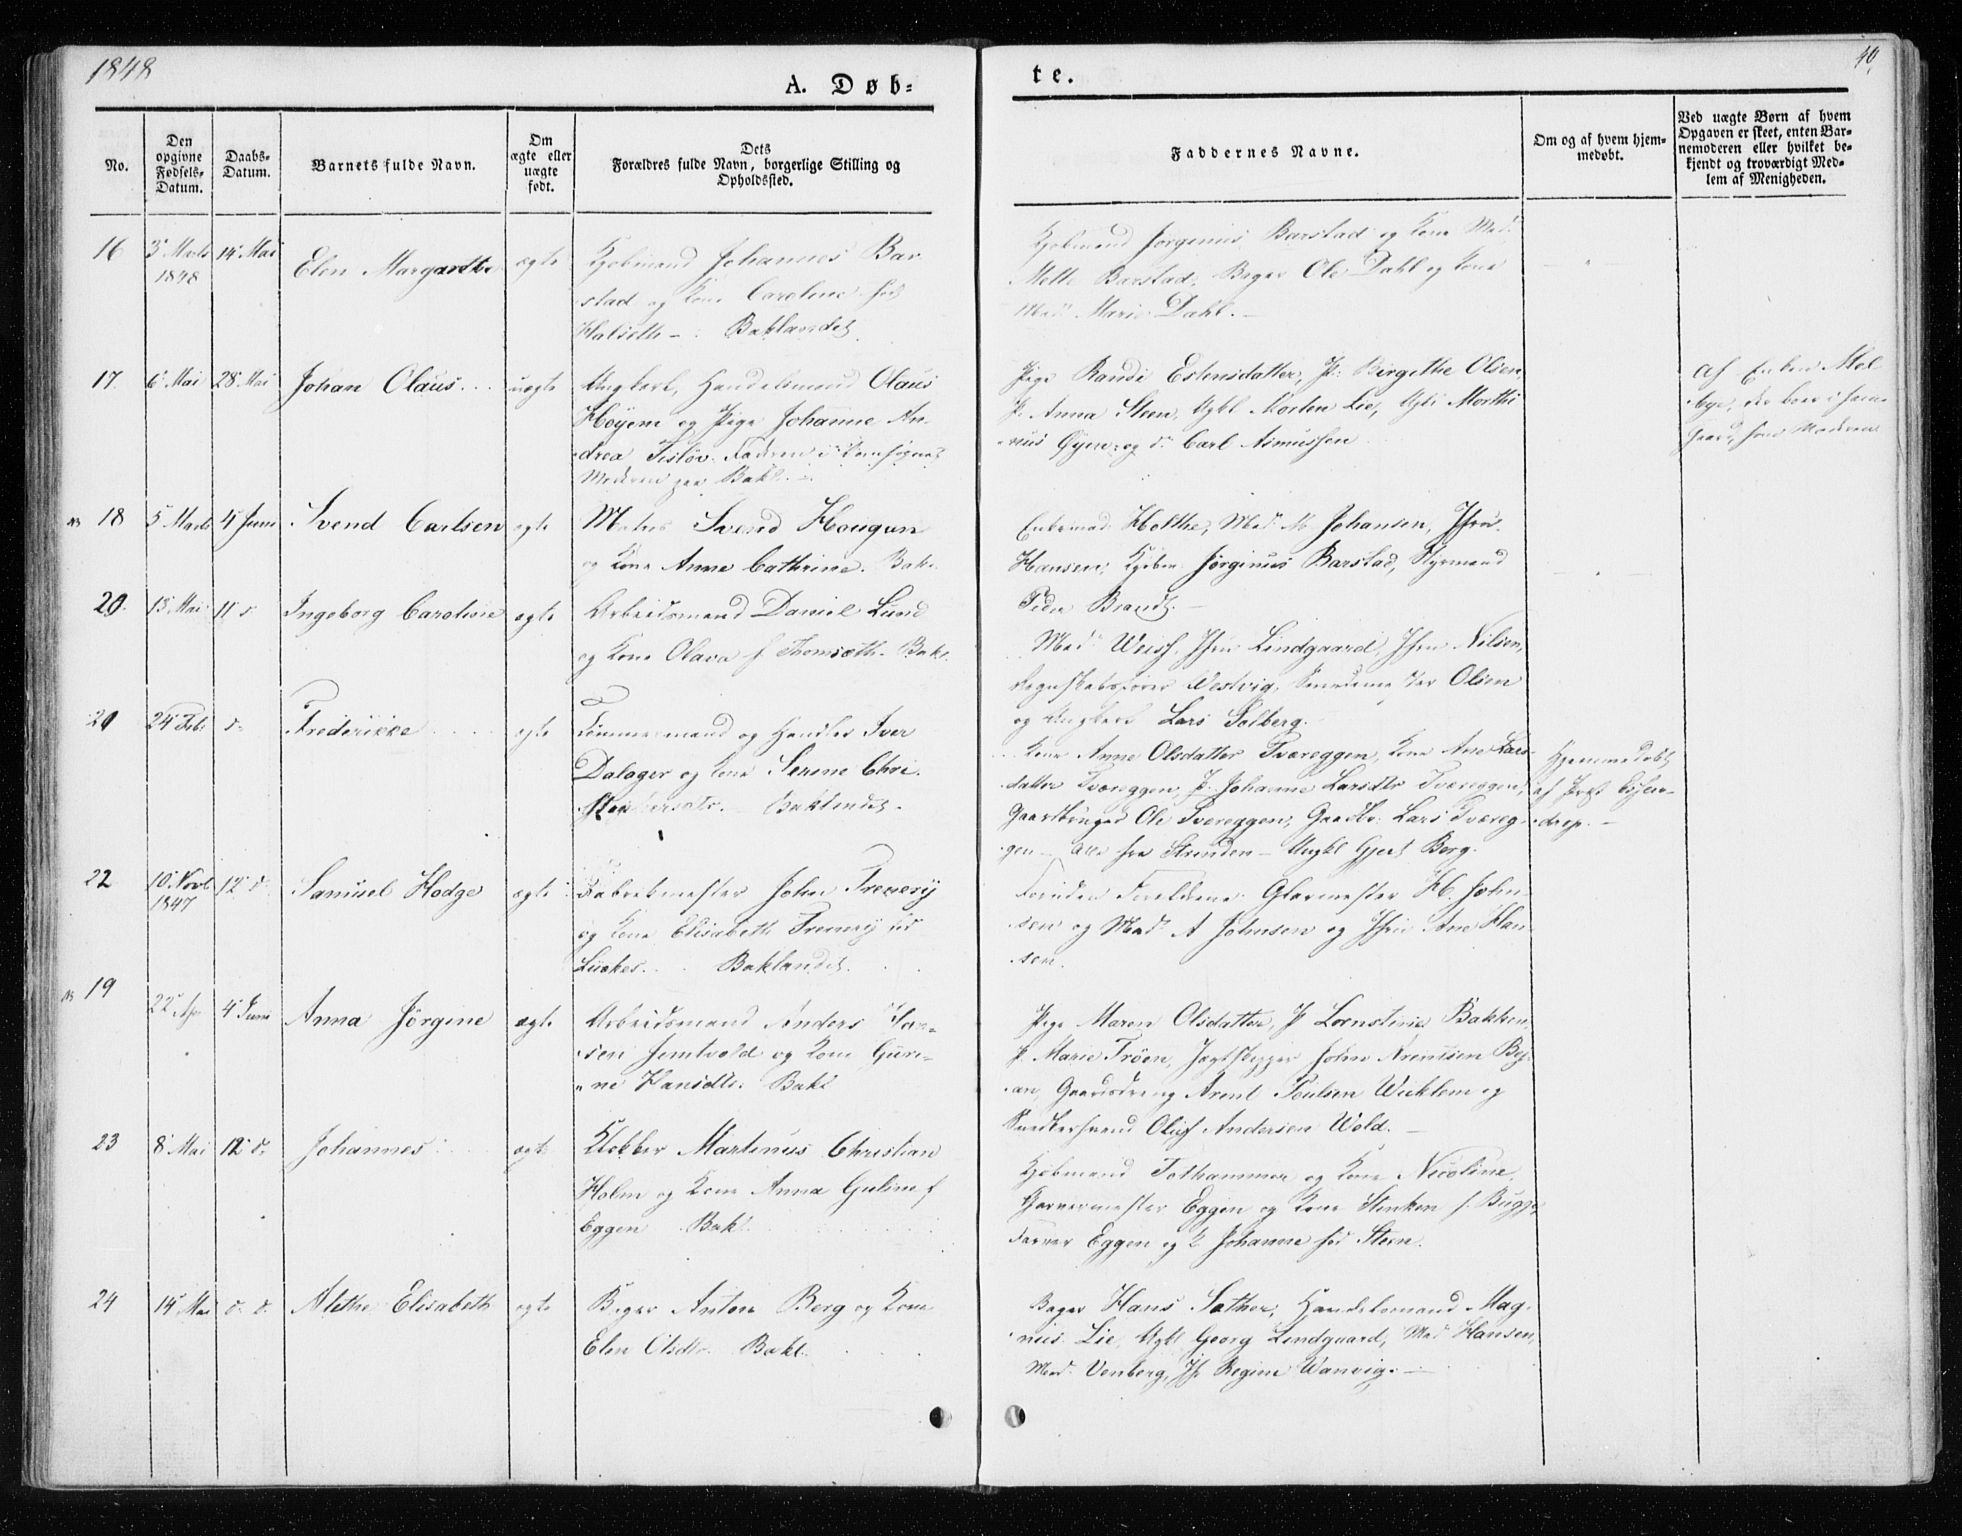 1848
A. Døb=
te.
40.
No.
Den opgivne Fødsels-Datum.
Daabs-Datum.
Barnets fulde Navn.
Om ægte eller uægte født.
Dets Forældres fulde Navn, borgerlige Stilling og Opholdssted.
Faddernes Navne.
Om og af hvem hjemmedøbt.
Ved uægte Børn af hvem Opgaven er skeet, enten Barnemoderen eller hvilket bekjendt og troværdigt Medlem af Menigheden.
16
3 Marts 1848
14 Mai
Elen Margarethe
ægte
Kjøbmand Johannes Bar-
stad og Kone Caroline fød
Halseth - Baklandet
Kjøbmand Jørginus Barstad og Kone Mad.
Mette Barstad, Bager Ole Dahl og Kone
Mad. Marie Dahl. -
17.
6 Mai
28 Mai
Johan Olaus
uægte
Ungkarl, Handelsmand Olaus
Høyem og Pige Johanne An-
drea Fisløv. Faderen i
Moderen paa Bakl.
Pige Randi Estensdatter, P. Birgethe Olsen
P. Anna Steen, Ugkl Morten Lie, Ugkl Morthi
nus Øyen og d. Carl Asmussen
Af Enken Mel
bye, der boer i sam-
gaard som Moderen
18
5 Marts
4 Juni
Svend Carlsen
ægte
Svend Hougan
og Kone Anne Cathrine. Bakl.
Enkemad. Holthe, Mad. M. Johansen, Jfru
Hansen, Kjøbm. Jørginus Barstad, Styrmand
Peder Brandt. -
20.
13 Mai
11 d
Ingeborg Caroline
ægte
Arbeidsmand Daniel Lund
og Kone Olava f. Thomseth. Bakl.
Mad. Weiss, Jfru Lindgaard, Jfru Nilsen,
Regnskabsfører Westvig, Olsen
og Ungkarl Lars Solberg.
21
24 Feb.
d.
Frederikke
ægte
Tømmermand og Handler Iver
Dalager og Kone Serine Chri-
Baklandet.
Kone Anne Olsdatter Tværeggen, Kone Ane Lars-
datter Tværeggen, P. Johanne Larsdtr Tværeggen,
Gaardbruger Ole Tvereggen, Gaardbr. Lars Tværeg-
gen - alle fra Strinden - Ungkl Gjert Berg.
Hjemmedøbt
af Præst
22
10 Novbr 1847
12 d.
Samuel Hodge
ægte
Fabrekmester John Trenery
og Kone Elisabeth Trenery fød
Luckes. Baklandet.
Foruden Forældrene: Glarmester H. John-
sen og Mad. A Johnsen og Jfru Ane Han-
sen.
19
22 Apr
4 Juni
Anna Jørgine
ægte
Arbeidsmand Anders
sen Jemtvold og Kone Guri-
ne Hansdtr. Bakl
Pige Maren Olsdatter, P. Lornstine Bakken
P. Marie Trøen, Jægtskipper John Arentsen
Gaardsdreng Arent Poulsen Wicklem og
Snedkersvend Oluf Andersen Wold. -
23
8 Mai
12 d.
Johannes
ægte
Klokker Martinus Christian
Holm og Kone Anna Guline f
Eggen Bakl.
Kjøbmand Tothammer og Kone Nicoline,
Garvermester Eggen og Kone Stenken f. Bugge,
Farver Eggen og K. Johanne fød Steen.
24
14 Mai
d. d.
Alethe Elisabeth
ægte
Bager Anton Berg og Kone
Elen Olsdtr. Bakl.
Bager Hans Sæther, Handelsmand Mag-
nus Lie, Ugkl Georg Lindgaard, Mad Hansen,
Mad. Venberg, Jf. Regine Wanvig. -